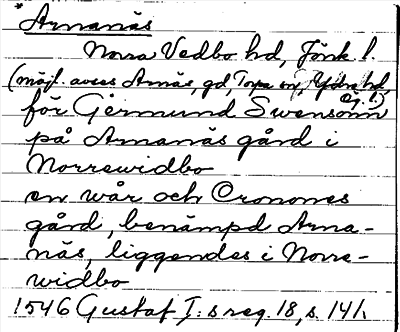 *Arnanäs
Norra Vedbo hd, Jönk l.
(möjl. avses Arnäs, gd, Torpa sn, Ydre hd,
Ög. l.)
för Germund Swensonn
på Arnanäs gård i
Norrewidbo
en wår och Cronones
gård, benämpd Arna-
näs, liggendes i Norre-
widbo
1546 Gustaf I:s reg. 18, s. 141.